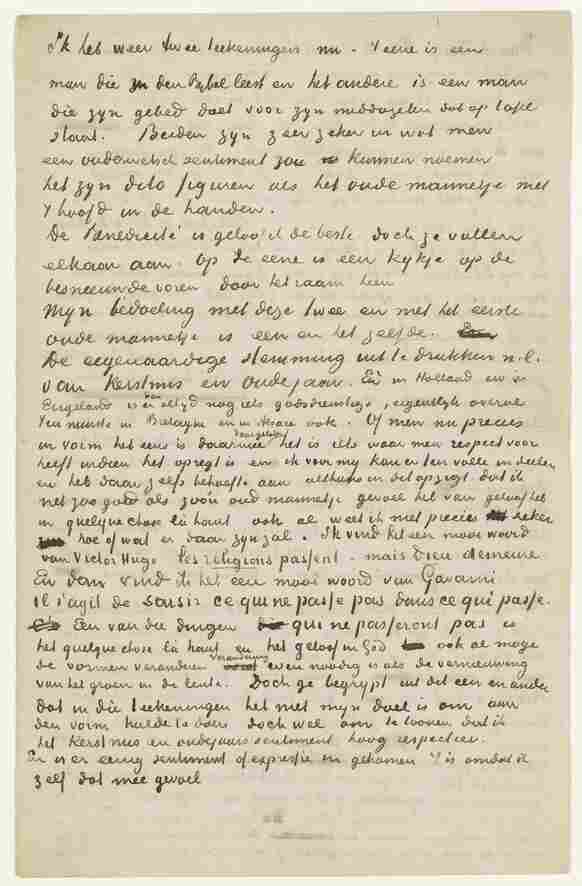 Ik heb weer twee teekeningen nu. 't eene is een
man die in den Bijbel leest en het andere is een man
die zyn gebed doet voor zyn middageten dat op tafel
staat. Beiden zyn zeer zeker in wat men
een ouderwetsch sentiment zou kunnen noemen
het zyn dito figuren als het oude mannetje met
't hoofd in de handen.
De Benedicité is geloof ik de beste doch ze vullen
elkaar aan. Op de eene is een kykje op de
besneeuwde voren door het raam heen
Myn bedoeling met deze twee en met het eerste
oude mannetje is een en het zelfde.
De eigenaardige stemming uit te drukken n.l.
van Kerstmis en oudejaar. En in Holland en in
Engeland is dan altyd nog iets godsdienstigs, eigentlyk overal
ten minste in Bretagne en in Alsace ook. Of men nu precies
in vorm het eens is daarmee het is iets waar men respect voor
heeft indien het opregt is en ik voor my kan er ten volle in deelen
en heb daar zelfs behoefte aan althans in dit opzigt dat ik
net zoo goed als zoo'n oud mannetje gevoel heb van geloof het
in quelque chose là haut ook al weet ik niet precies zeker
hoe of wat er daar zyn zal. Ik vind het een mooi woord
van Victor Hugo les religions passent - mais Dieu demeure
En dan vind ik het een mooi woord van Gavarni
il s'agit de saisir ce qui ne passe pas dans ce qui passe.
Een van die dingen qui ne passeront pas is
het quelque chose là haut en het geloof in God ook al moge
de vormen veranderen verandering even noodig is als de vernieuwing
van het groen in de lente. Doch ge begrypt uit dit een en ander
dat in die teekeningen het niet myn doel is om aan
den vorm hulde te doen doch wel om te toonen dat ik
het Kerstmis en oudejaars sentiment hoog respecteer.
En is er eenig sentiment of expressie in gekomen 't is omdat ik
zelf dat mee gevoel